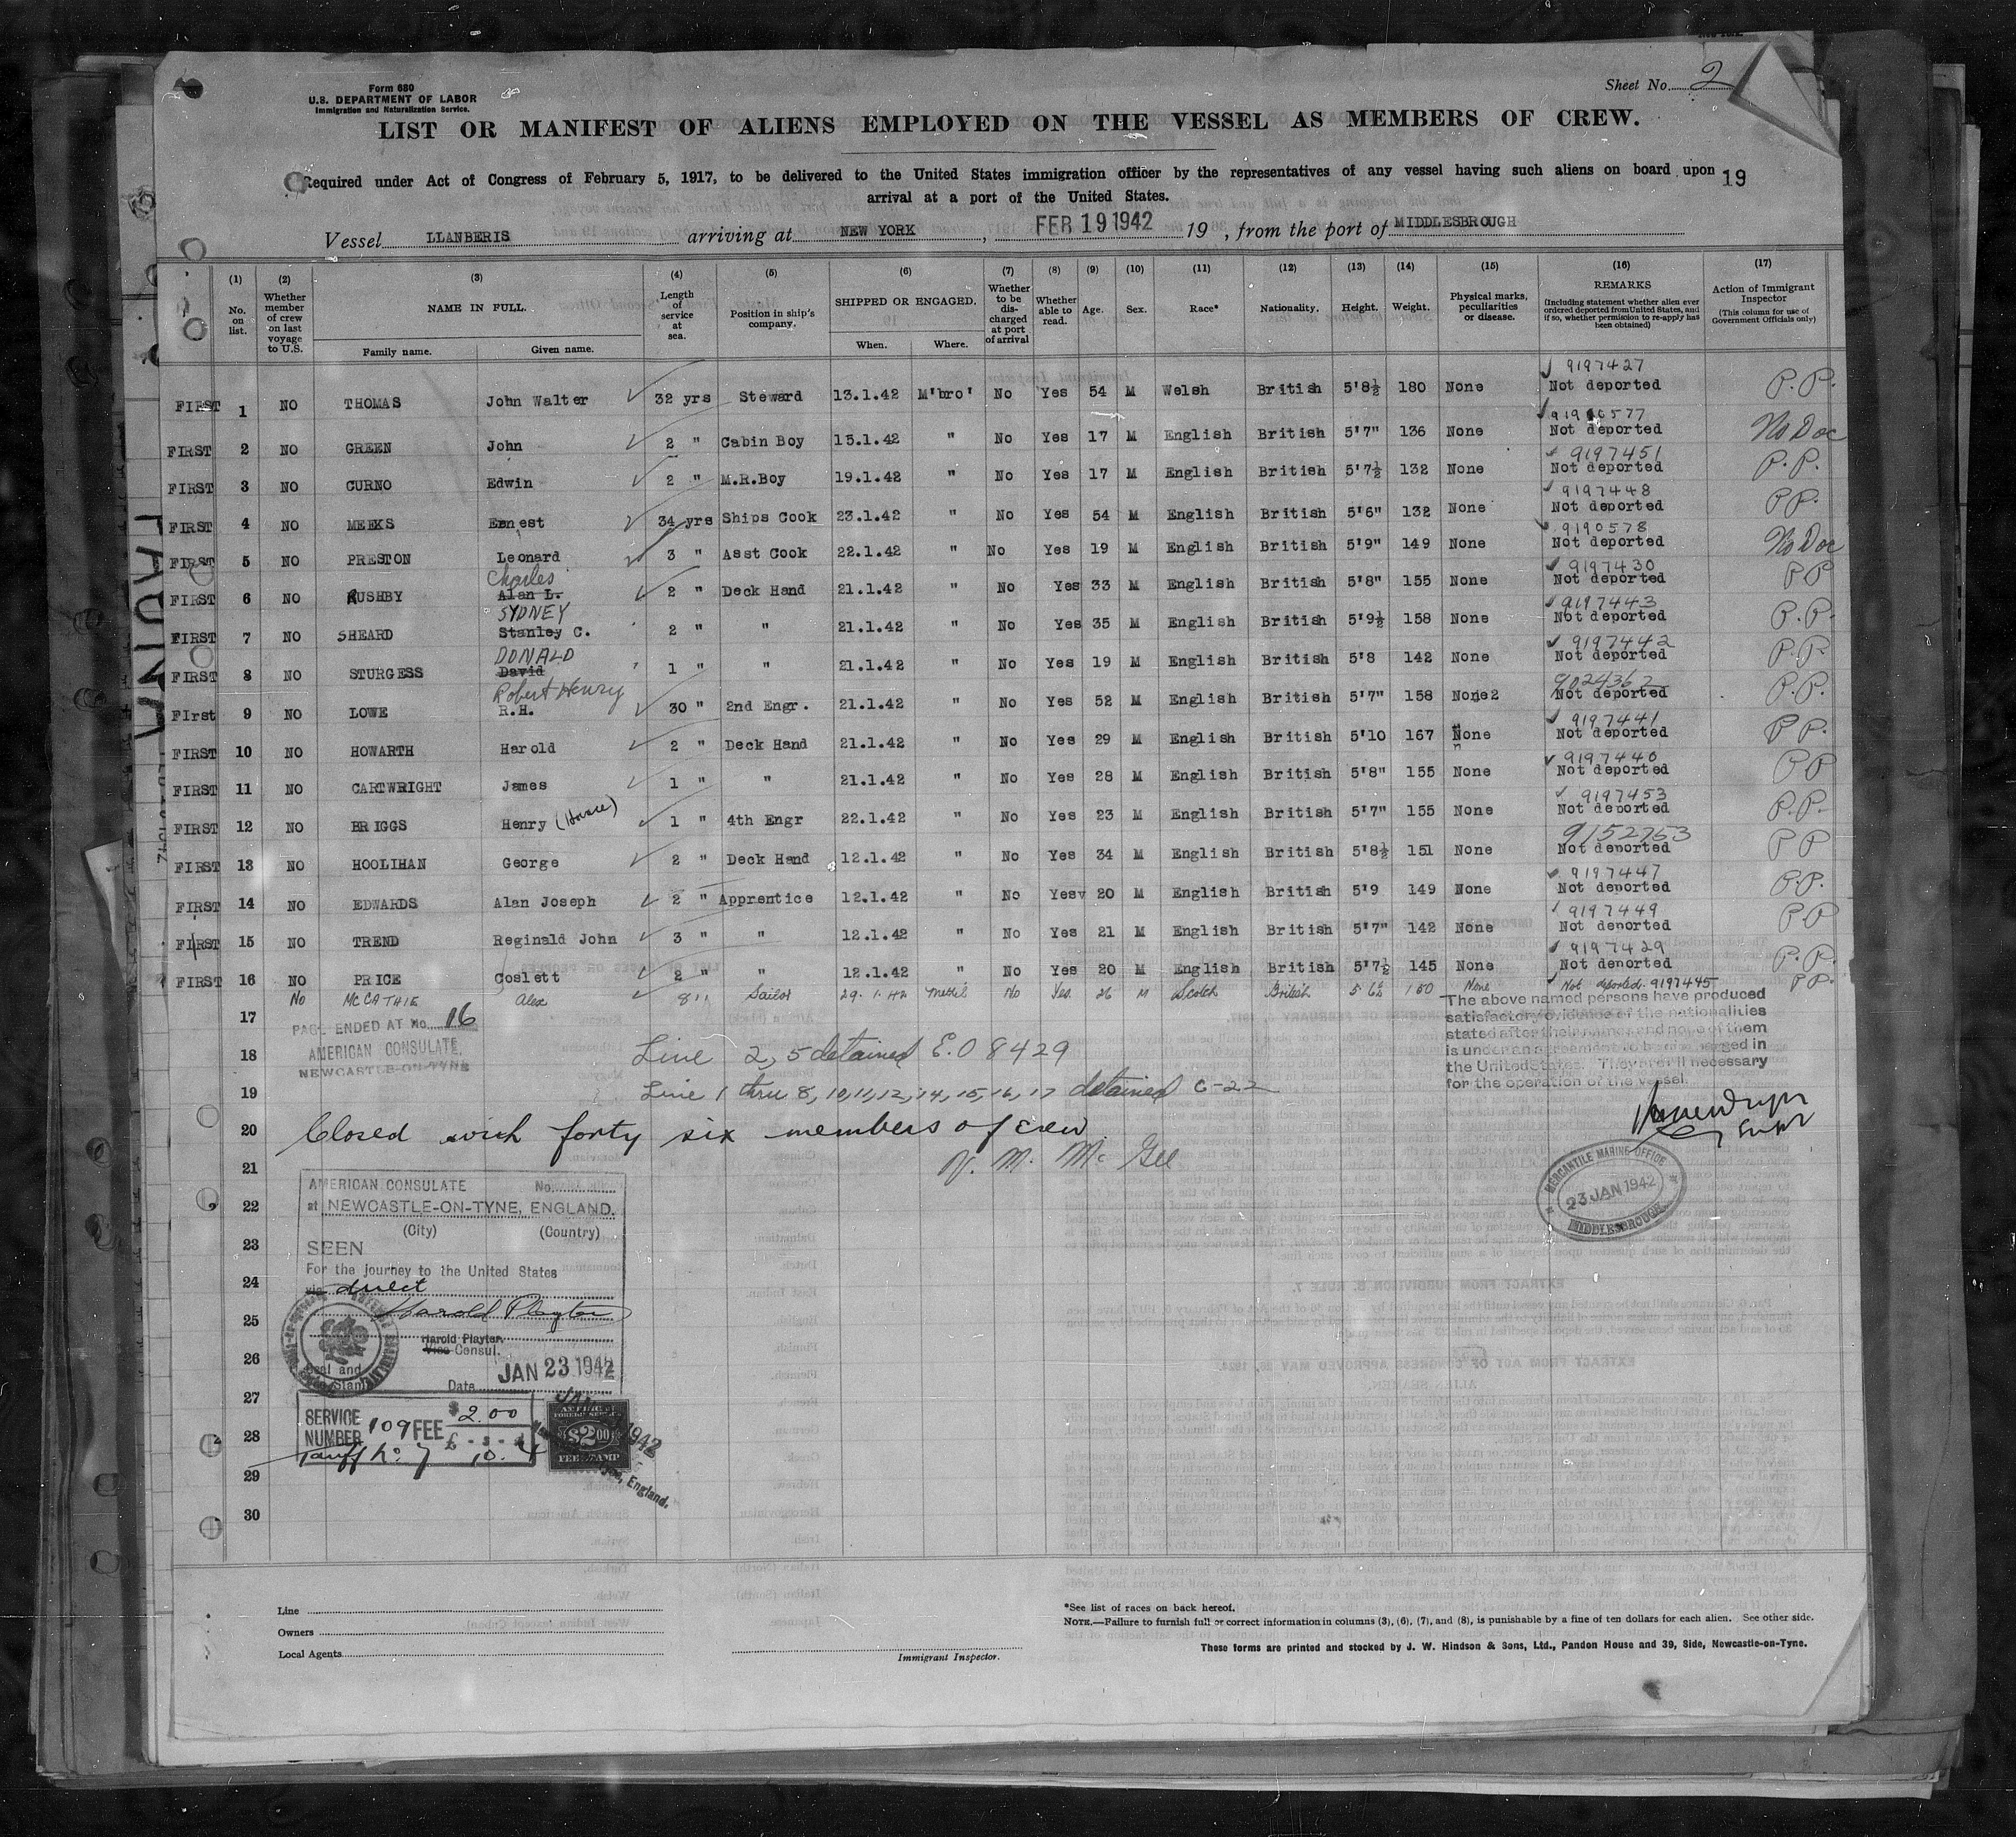 Form 680
U.S. DEPARTMENT OF LABOR
Immigration and Naturalization Service.
Sheet No. 2
LIST OR MANIFEST OF ALIENS EMPLOYED ON THE VESSEL AS MEMBERS OF CREW.
Required under Act of Congress of February 5, 1917, to be delivered to the United States immigration officer by the representatives of any vessel having such aliens on board upon 19
arrival at a port of the United States.
Vessel LLANBERIS arriving at NEW YORK, FEB 19 1942 19 , from the port of MIDDLESBROUGH
(1) (2) (3) (4) (5) (6) (7) (8) (9) (10) (11) (12) (13) (14) (15) (16) (17)
No. on list. Whether member of crew on last voyage to U.S. NAME IN FULL. Family name. Given name. Length of service at sea. Position in ship's company. SHIPPED OR ENGAGED. When. Where. Whether to be discharged at port of arrival Whether able to read. Age. Sex. Race* Nationality. Height. Weight. Physical marks, peculiarities or disease. REMARKS (Including statement whether alien ever ordered deported from United States, and if so, whether permission to re-apply has been obtained) Action of Immigrant Inspector (This column for use of Government Officials only)
FIRST 1 NO THOMAS John Walter 32 yrs Steward 13.1.42 M'bro' No Yes 54 M Welsh British 5'8½ 180 None 9197427 Not deported P.P.
FIRST 2 NO GREEN John 2 " Cabin Boy 15.1.42 " No Yes 17 M English British 5'7" 136 None 9190577 Not deported No Doc
FIRST 3 NO CURNO Edwin 2 " M.R.Boy 19.1.42 " No Yes 17 M English British 5'7½ 132 None 9197451 Not deported P.P.
FIRST 4 NO MEEKS Ernest 34 yrs Ships Cook 23.1.42 " No Yes 54 M English British 5'6" 132 None 9197448 Not deported PP.
FIRST 5 NO PRESTON Leonard 3 " Asst Cook 22.1.42 " No Yes 19 M English British 5'9" 149 None 9190578 Not deported No Doc
FIRST 6 NO RUSHBY Charles Alan L. 2 " Deck Hand 21.1.42 " No Yes 33 M English British 5'8" 155 None 9197430 Not deported PP
FIRST 7 NO SHEARD SYDNEY Stanley C. 2 " " 21.1.42 " No Yes 35 M English British 5'9½ 158 None 9197443 Not deported P.P.
FIRST 8 NO STURGESS DONALD David 1 " " 21.1.42 " No Yes 19 M English British 5'8 142 None 9197442 Not deported P.P
First 9 NO LOWE Robert Henry R.H. 30 " 2nd Engr. 21.1.42 " No Yes 52 M English British 5'7" 158 None2 9024362 Not deported P.P.
FIRST 10 NO HOWARTH Harold 2 " Deck Hand 21.1.42 " No Yes 29 M English British 5'10 167 None 9197441 Not deported PP.
FIRST 11 NO CARTWRIGHT James 1 " " 21.1.42 " No Yes 28 M English British 5'8" 155 None 9197440 Not deported PP
FIRST 12 NO BRIGGS Henry 1 " 4th Engr 22.1.42 " No Yes 23 M English British 5'7" 155 None 9197453 Not deported P.P.
FIRST 13 NO HOOLIHAN George 2 " Deck Hand 12.1.42 " No Yes 34 M English British 5'8½ 151 None 9152763 Not deported PP
FIRST 14 NO EDWARDS Alan Joseph 2 " Apprentice 12.1.42 " No Yes 20 M English British 5'9 149 None 9197447 Not deported P.P.
FIRST 15 NO TREND Reginald John 3 " " 12.1.42 " No Yes 21 M English British 5'7" 142 None 9197449 Not deported PP
FIRST 16 NO PRICE Coslett 2 " " 12.1.42 " No Yes 20 M English British 5'7½ 145 None 9197429 Not deported P.P.
17 No McCATHIE Alex 8 " Sailor 29.1.42 Methil No Yes 26 M Scotch British 5 6½ 150 None Not deported 9197445 PP.
PAGE ENDED AT No. 16
AMERICAN CONSULATE,
NEWCASTLE-ON-TYNE
The above named persons have produced
satisfactory evidence of the nationalities
stated after their names and none of them
is under an agreement to be discharged in
the United States. They are all necessary
for the operation of the vessel.
18 Line 2, 5 detained E.O 8429
19 Line 1 thru 8, 10,11,12,14,15,16,17 detained C-22
20 Closed with forty six members of crew
21 V. M. McGee
Supt
MERCANTILE MARINE OFFICE
23 JAN 1942
MIDDLESBROUGH
AMERICAN CONSULATE No.
22 at NEWCASTLE-ON-TYNE, ENGLAND.
(City) (Country)
23 SEEN
For the journey to the United States
24 via direct
25 Harold Playter
Harold Playter
26 Vice Consul.
Seal and
Date JAN 23 1942
27
SERVICE NUMBER 109 FEE $2.00
28 £ - s - d
Tariff No 7 10. 4
$2.00
FEE STAMP
England.
29
30
Line
Owners
Local Agents
Immigrant Inspector.
*See list of races on back hereof.
NOTE.—Failure to furnish full or correct information in columns (3), (6), (7), and (8), is punishable by a fine of ten dollars for each alien. See other side.
These forms are printed and stocked by J. W. Hindson & Sons, Ltd., Pandon House and 39, Side, Newcastle-on-Tyne.